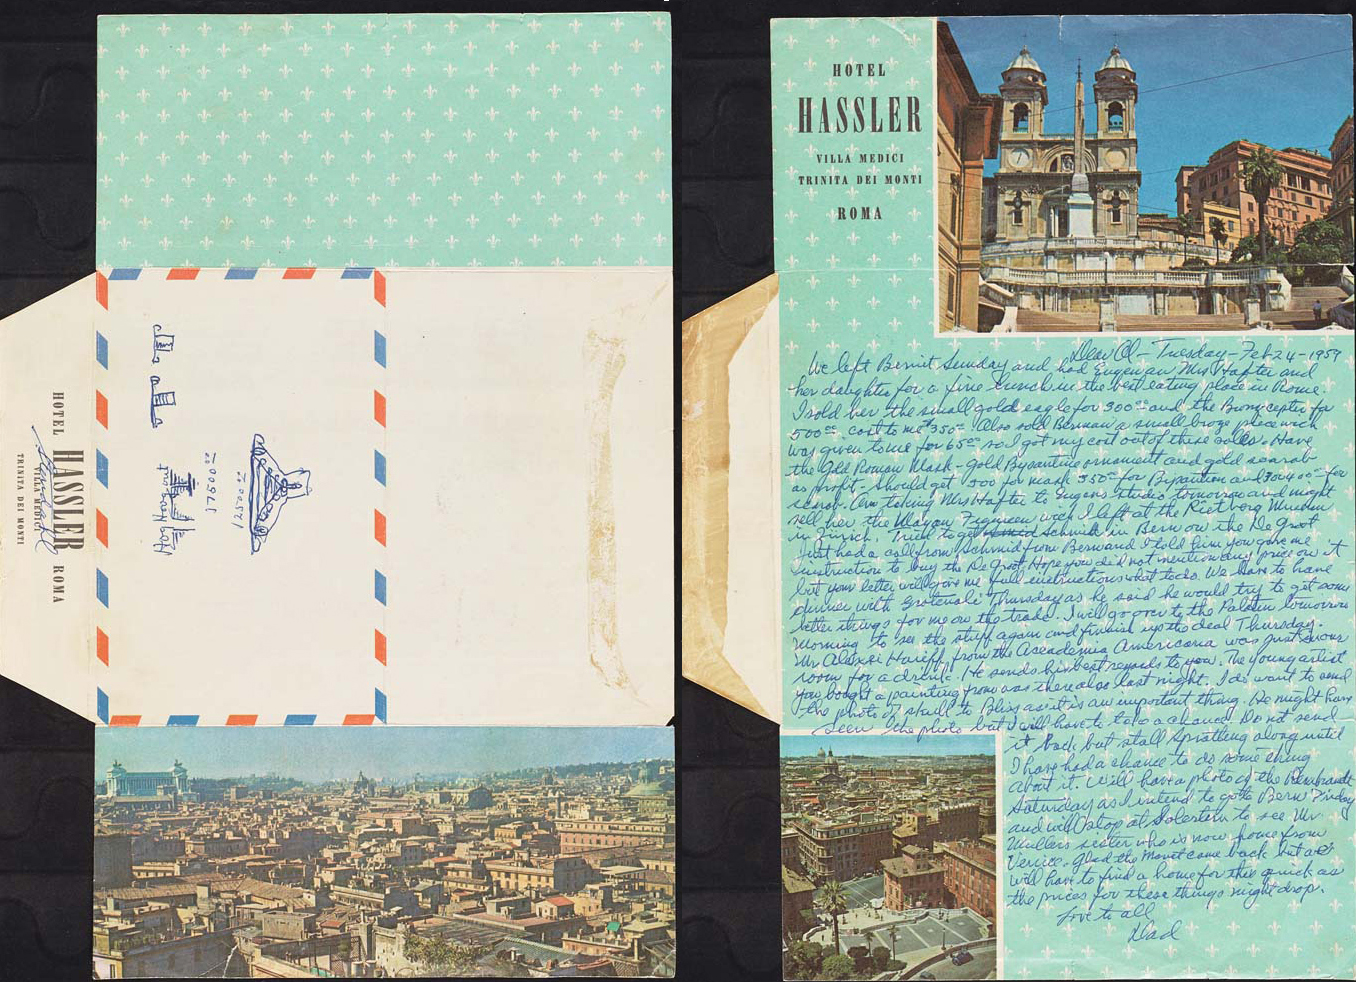 HOTEL
HASSLER
VILLA MEDICI
TRINITA DEI MONTI
ROMA
Dear Al - Tuesday - Feb 24 - 1959
We left Bernit Sunday and had Eugenian Mrs Hafter and
her daughter for a fine lunch in the best eating place in Rome.
I sold her the small gold eagle for 300 and the Bronze for
500 cost to me $350 Also sold Berman a small broze piece wich
was given to me for 65 so I got my cost out of these sales. Have
the Gold Roman Mask - gold Bysantine ornament and gold scarab
as profit. Should get for mask 350 for Bizantion and 300 for
scarab. Am taking Mrs Hafter to Eugens studio tomorrow and might
sell her the Mayan Figureen wich I left at the Rietberg Museum
in Zurich. Tried to get Schmidt in Bern on the De Groot
Just had a call from Schmid from Bern and I told him you gave me
instruction to buy the De Groot. Hope you did not mention any price on it
but your letter will give me full instructions what to do. We have to have
dinner with Thursday as he said he would try to get some
better things for me on the trade. I will go over to the Palatin tomorrow
morning to see the stuff again and finnish up the deal Thursday.
Mr from the Accademia Americana was just in our
room for a drink. He sends his best regards to you. The young artist
you bought a painting from was there also last night. I do want to send
the photo of skull to Bliss as it is an important thing. He might have
seen the photo but I will have to take a chance. Do not send
it back but stall Spratling along until
I have had a chance to do some thing
about it. Will have a photo of the Rembrandt
Saturday as I intend to go to Bern Friday
and will stop at Solestern to see Mr
Mullers sister who is now home from
Venice. Glad the Monet came back but we
will have to find a home for this quick as
the prices for these things might drop.
Love to all
Dad
HOTEL HASSLER ROMA
VILLA MEDICI
TRINITA DEI MONTI